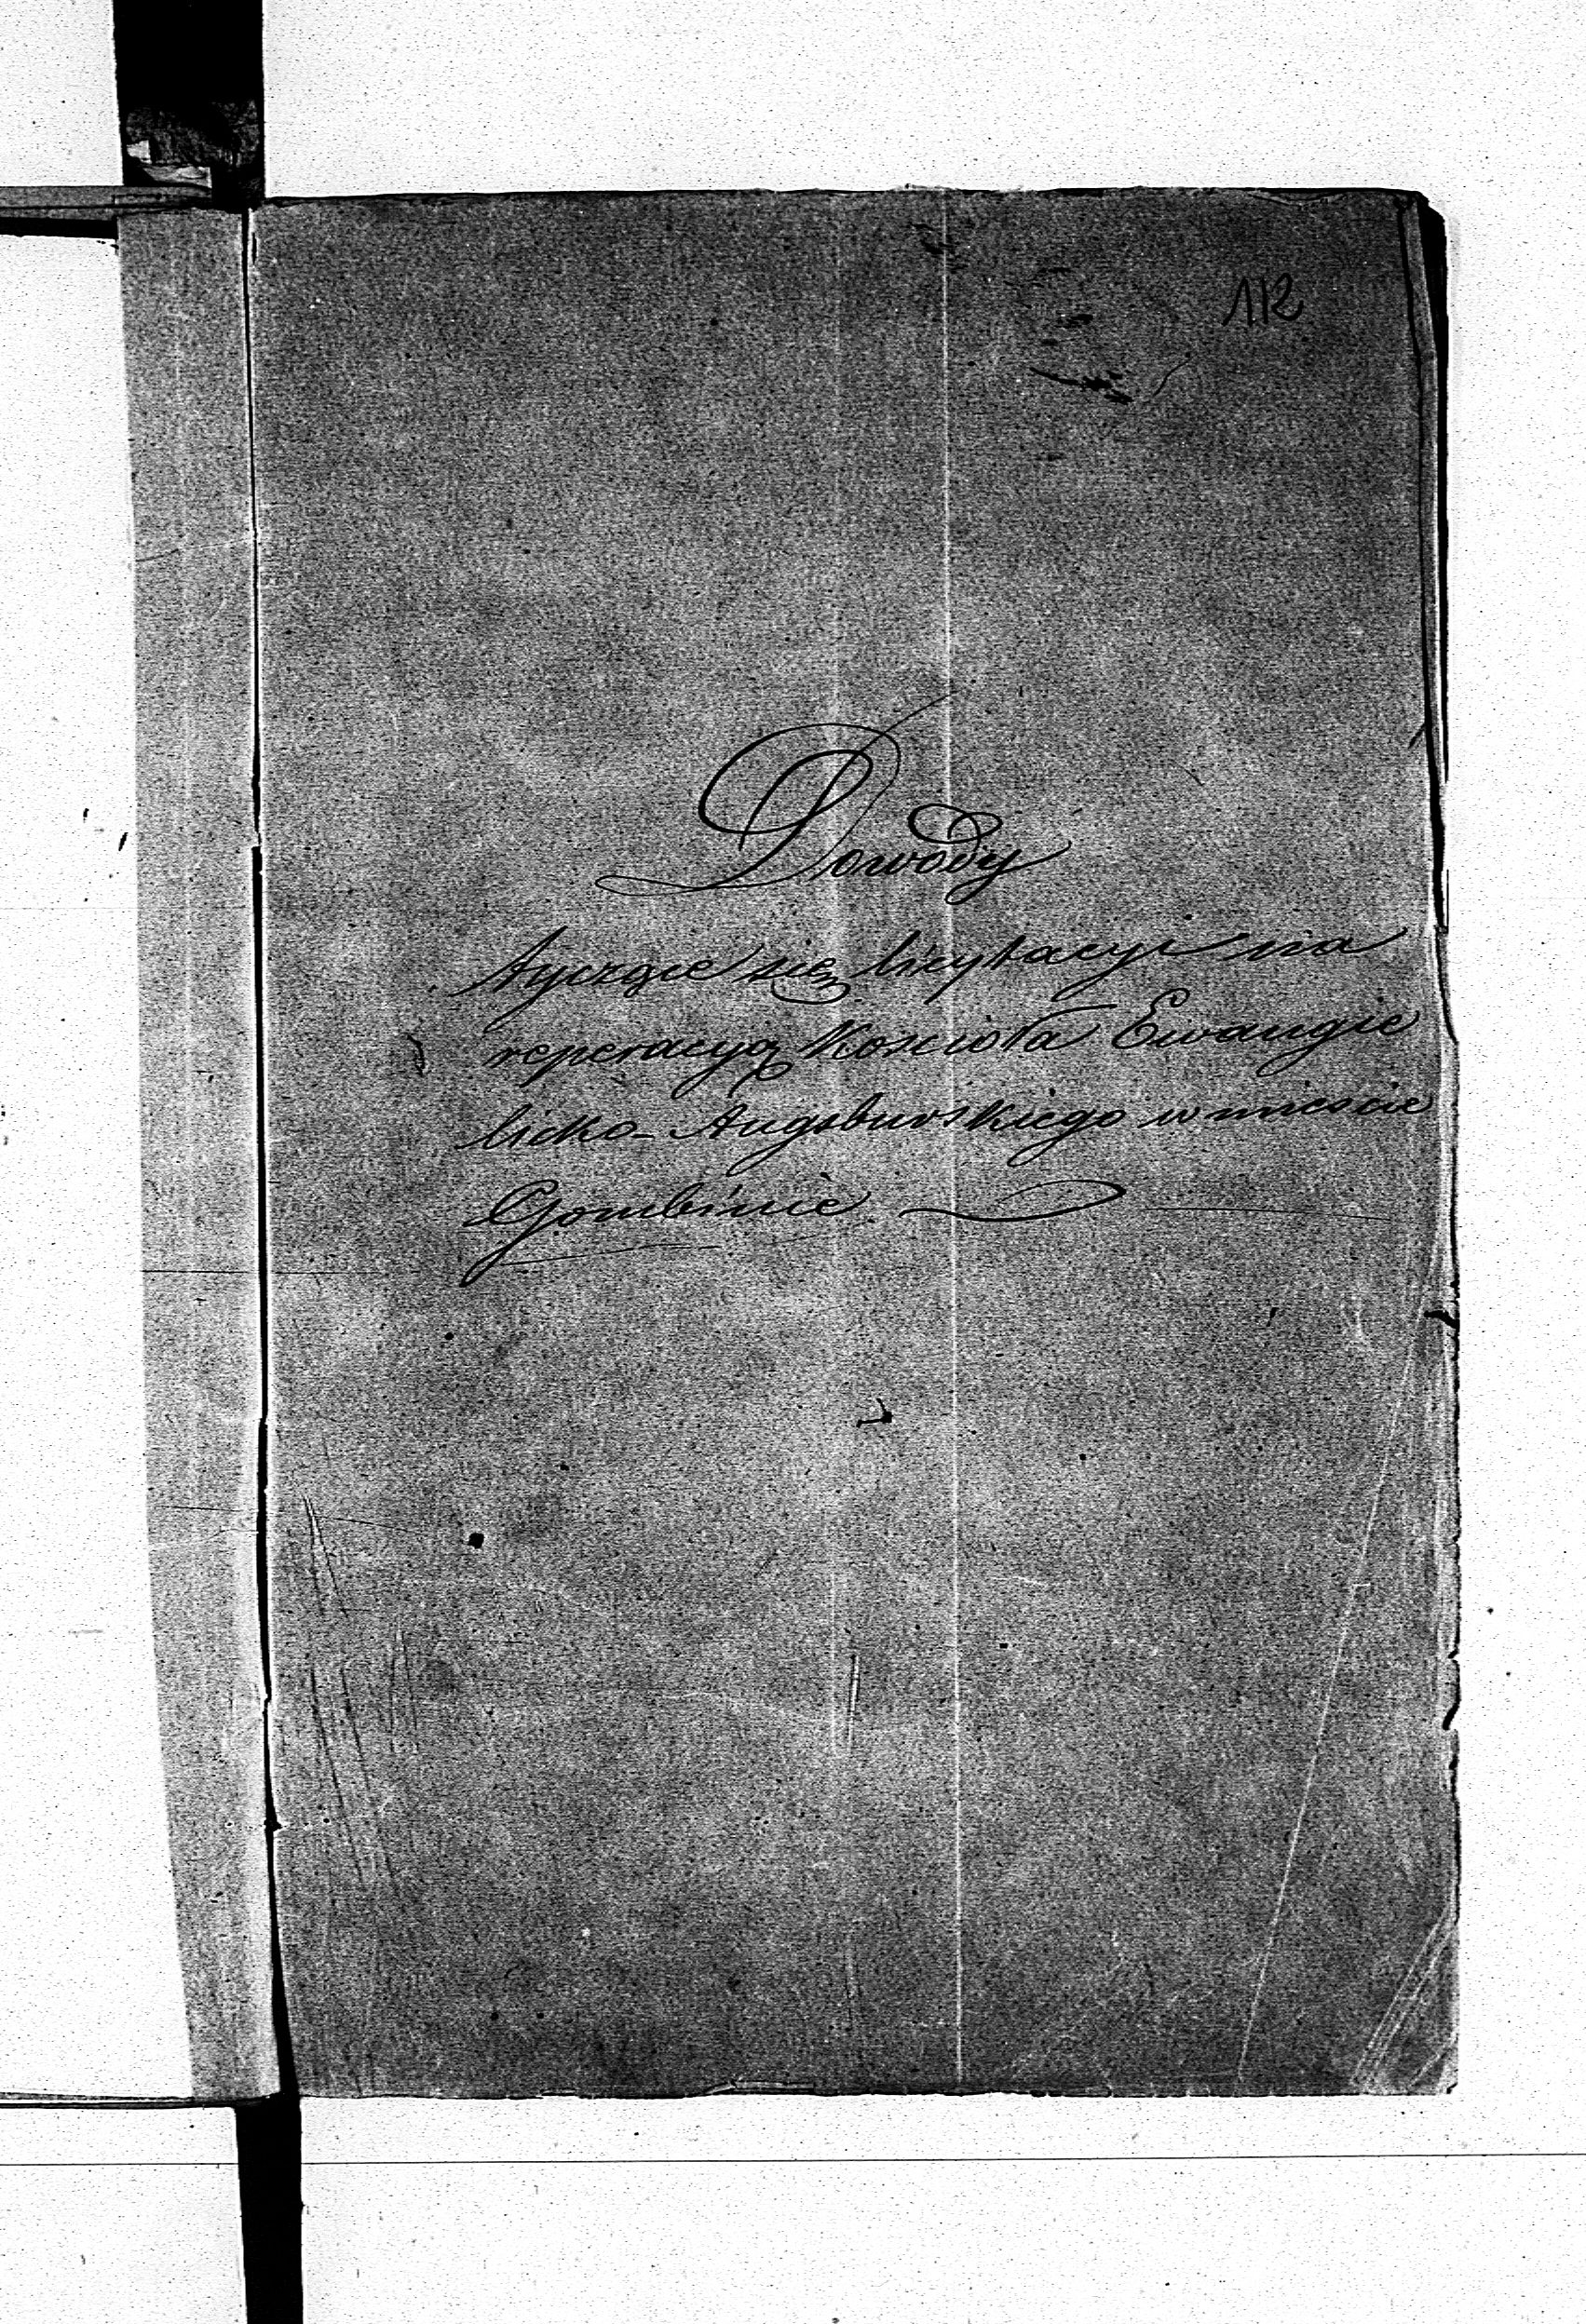 112
Dowody
tyczące się licytacyi na
reperacyą Kościoła Ewangie
licko-Augsburskiego w mieście
Gombinie